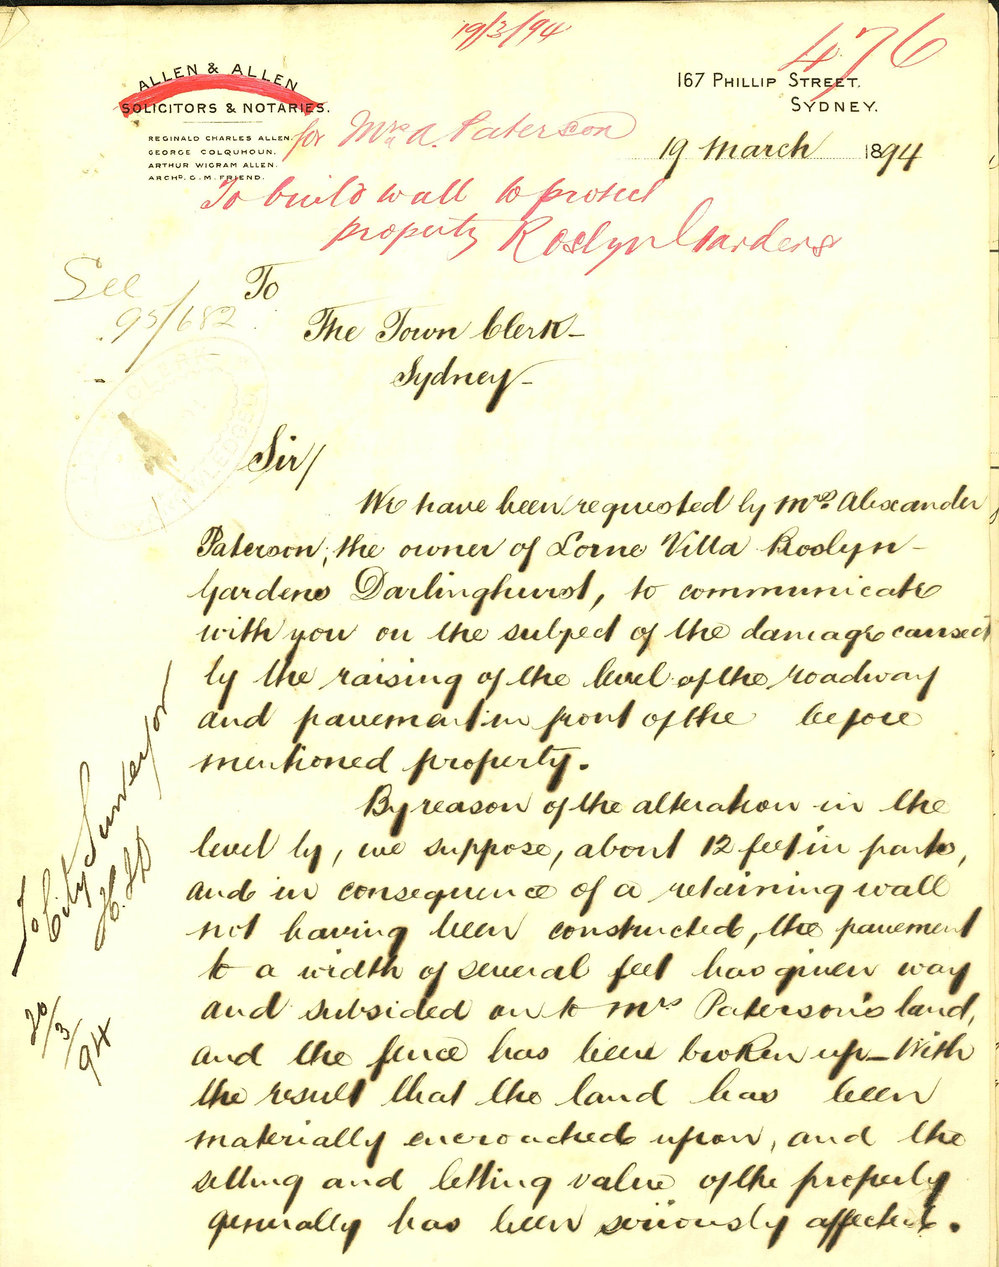 19/3/94
476
ALLEN & ALLEN
SOLICITORS & NOTARIES.
REGINALD CHARLES ALLEN.
GEORGE COLQUHOUN.
ARTHUR WIGRAM ALLEN.
ARCHD. C. M. FRIEND.
167 PHILLIP STREET,
SYDNEY.
19 March 1894
for Mrs A. Paterson
To build wall to protect
property Roslyn Gardens
See
95/682
To
The Town Clerk -
Sydney -
Sir/
We have been requested by Mrs. Alexander
Paterson, the owner of Lorne Villa Roslyn -
Gardens Darlinghurst, to communicate
with you on the subject of the damage caused
by the raising of the level of the roadway
and pavement in front of the before
mentioned property.
By reason of the alteration in the
level by, we suppose, about 12 feet in parts,
and in consequence of a retaining wall
not having been constructed, the pavement
to a width of several feet has given way
and subsided on to Mrs Paterson's land,
and the fence has been broken up - With
the result that the land has been
materially encroached upon, and the
selling and letting value of the property
generally has been seriously affected.
To City Surveyor
20/3/94